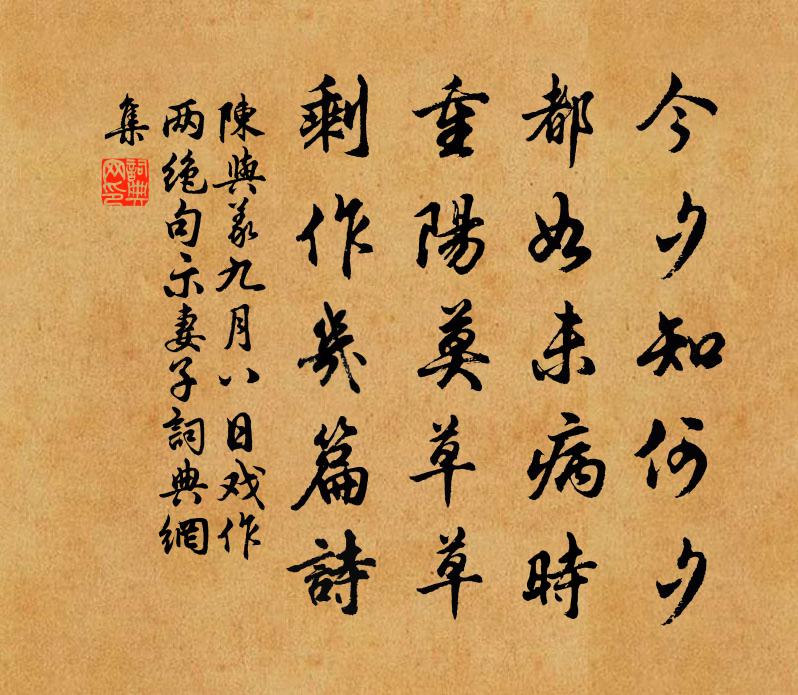 今夕知何夕
都如未病時
重陽莫草草
剩作幾篇詩
陳與義九月八日戏作
两絶句示妻子詞典網
集
詞典
网印